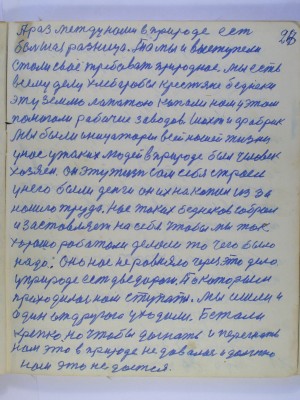 А раз между нами в природе ест
большая разница. Та мы и выступели
стоим своё требоват природное. Мы есть
всему делу хлеборобы крестяне бедняки
эту землю лопатою копали нам у этом
помогали рабочие заводов шахт и фабрик
Мы были инициаторы всей нашей жизни
у нас у таких людей в природе был человек
хозяен. Он эту жизн сам себе строел
у него были денги он их накопил из за
нашего труда. Нас таких бедняков собрал
и заставляет на себя чтобы мы так
хорошо работали делали то чего было
надо. Оно нас не ровняло через это дело
у природе ест две дороги. По которым
приходилос нам ступати. Мы ишли и
один от другого уходили. Бежали
крепко, но чтобы догнать и перегнать
нам это в природе не давалос и должно
нам это не дастся.